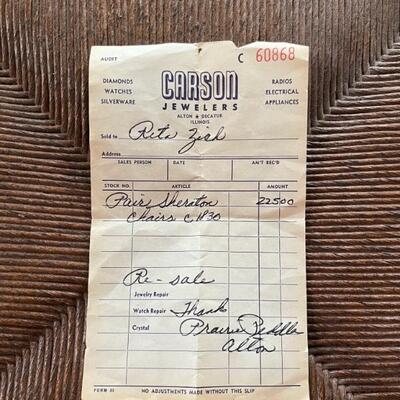 AUDIT C 60868
DIAMONDS
WATCHES
SILVERWARE
CARSON
JEWELERS
ALTON ♦ DECATUR
ILLINOIS
RADIOS
ELECTRICAL
APPLIANCES
Sold to Rita Zish
Address
SALES PERSON DATE AM'T REC'D
STOCK NO. ARTICLE AMOUNT
Pair Sheraton 22500
Chairs c1830
Re-sale
Jewelry Repair
Watch Repair Thank
Crystal Prairie Peddler
Alton
FORM 35 NO ADJUSTMENTS MADE WITHOUT THIS SLIP